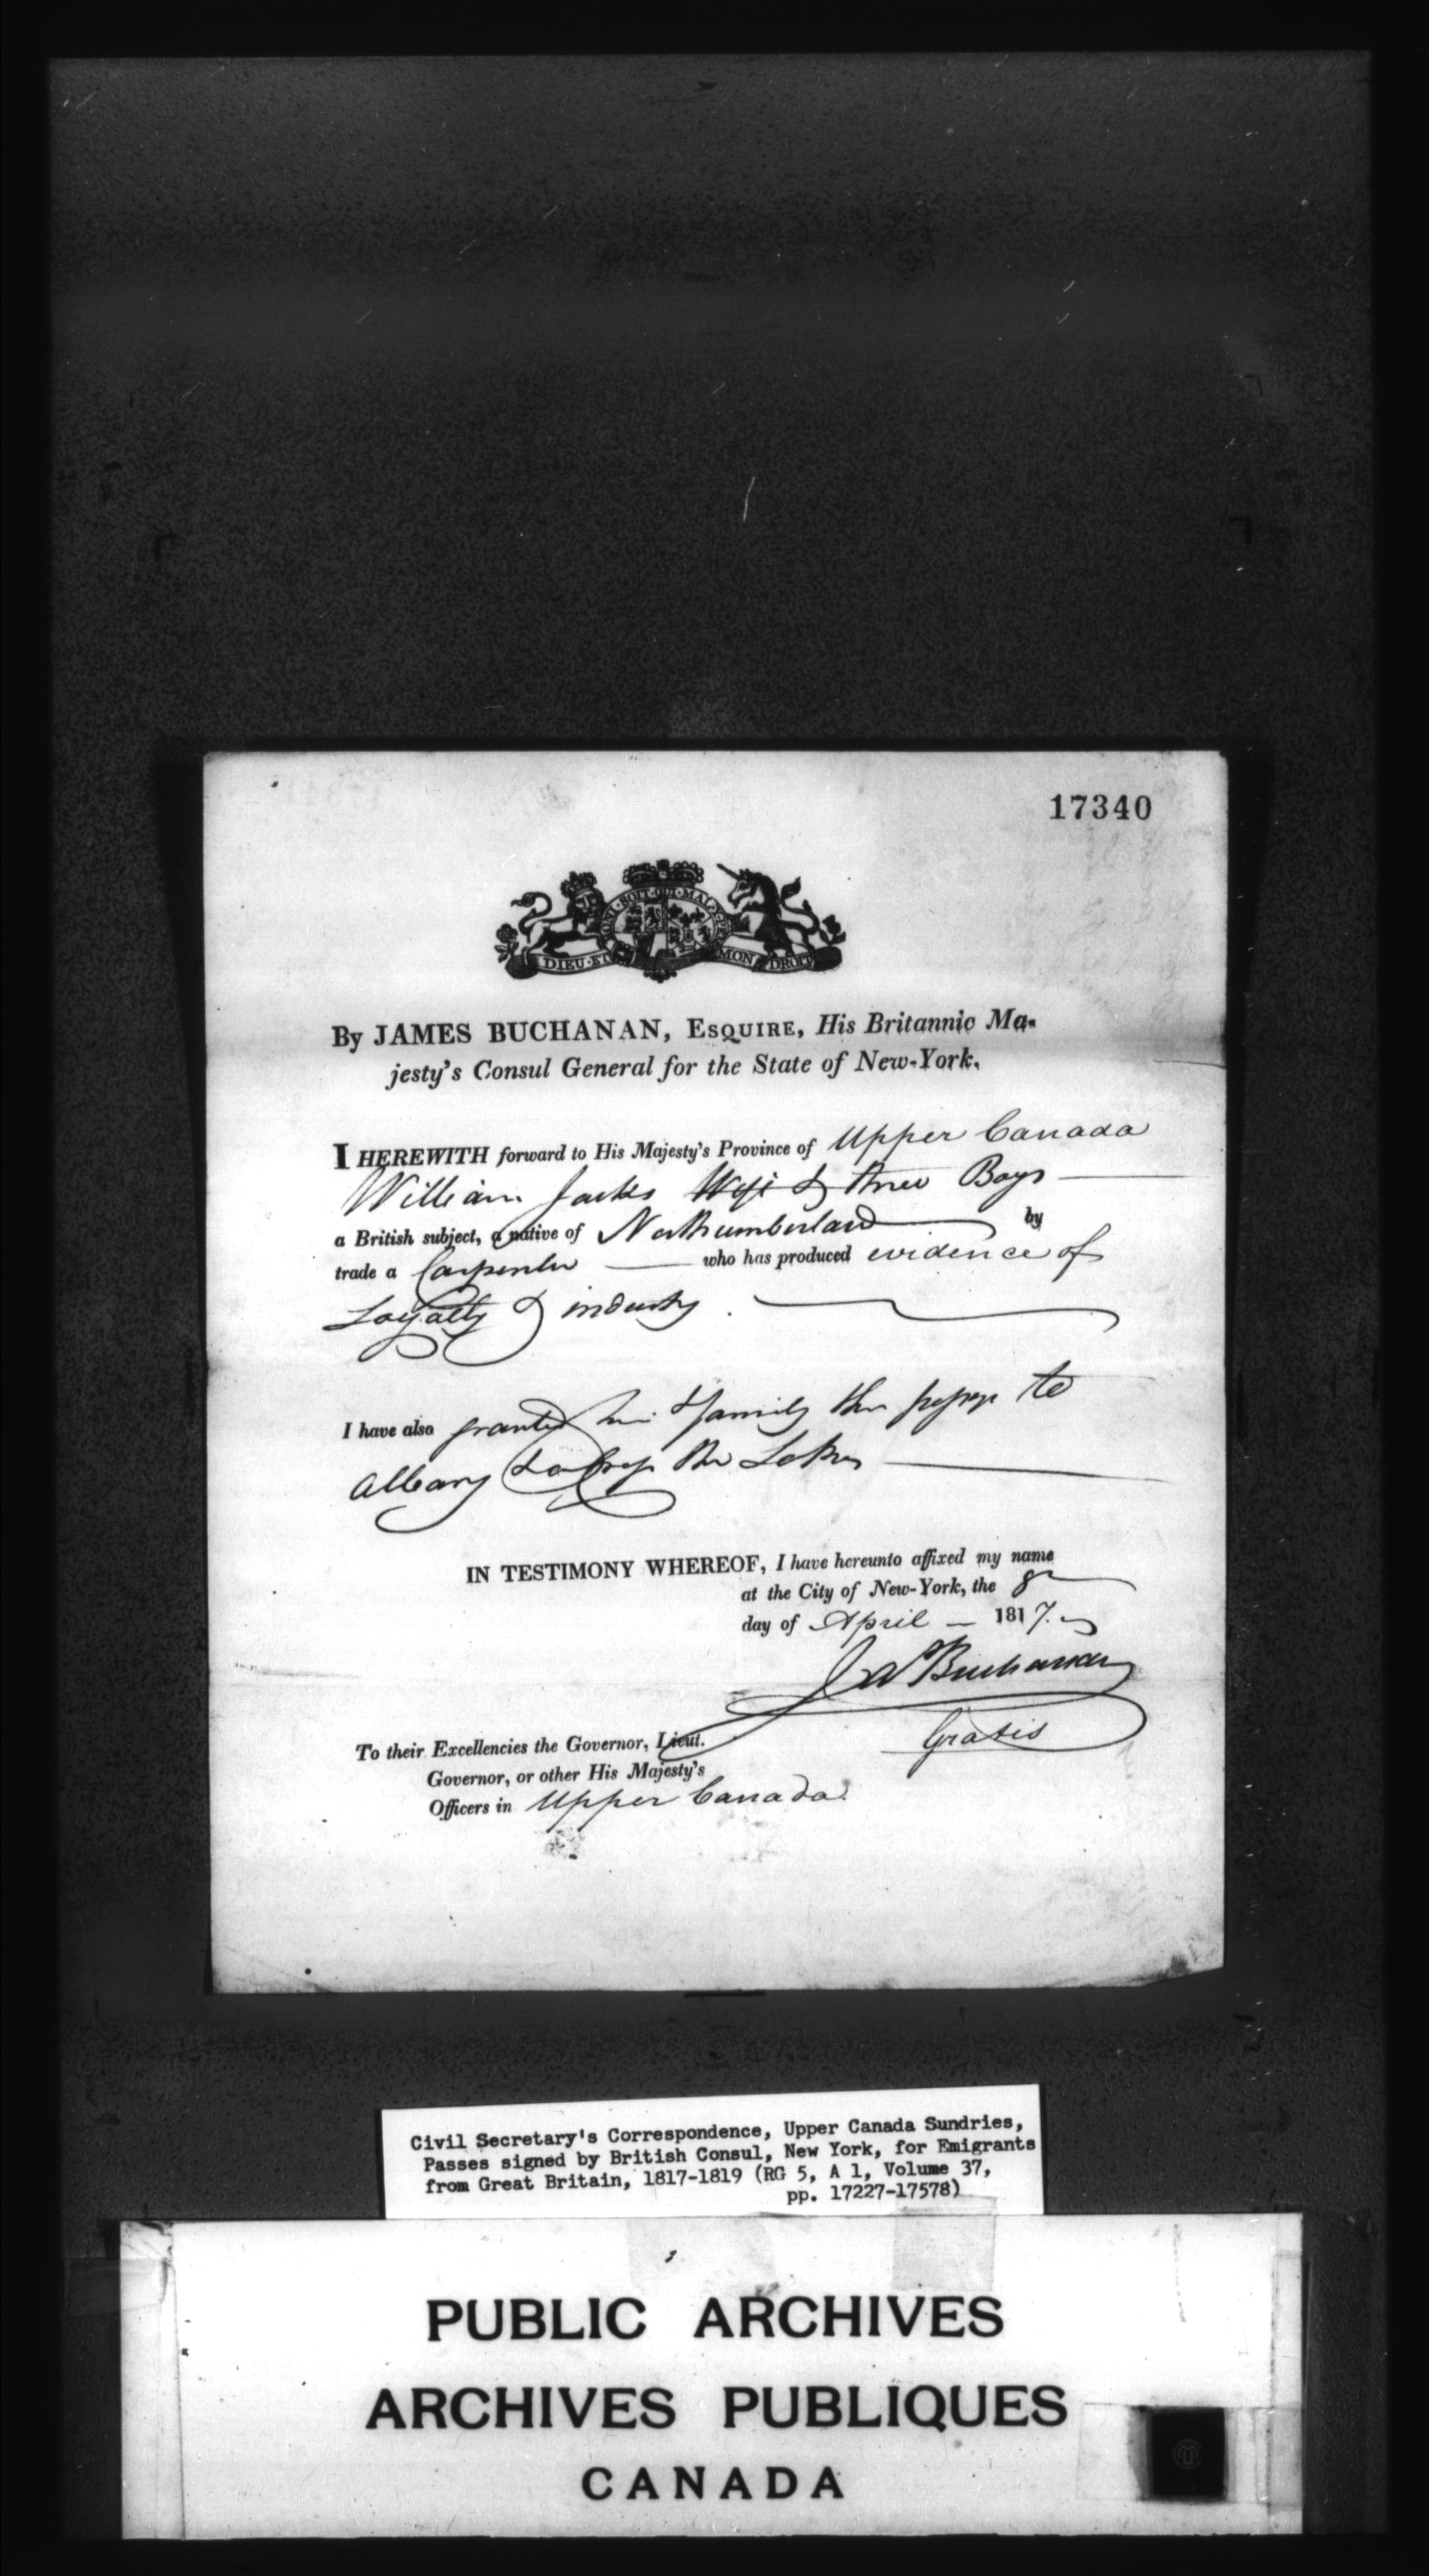 17340
HONI·SOIT·QUI·MAL·Y·PE
DIEU·ET MON DROIT
By JAMES BUCHANAN, ESQUIRE, His Britannic Ma-
jesty's Consul General for the State of New-York.
I HEREWITH forward to His Majesty's Province of Upper Canada
William Jacks Wife & three Boys
a British subject, a native of Northumberland by
trade a Carpenter who has produced evidence of
Loyalty & industry.
I have also granted him & family their passage to
Albany & across the Lakes
IN TESTIMONY WHEREOF, I have hereunto affixed my name
at the City of New-York, the 8th
day of April — 1817.
Jas Buchanan
Gratis
To their Excellencies the Governor, Lieut.
Governor, or other His Majesty's
Officers in Upper Canada.
Civil Secretary's Correspondence, Upper Canada Sundries,
Passes signed by British Consul, New York, for Emigrants
from Great Britain, 1817-1819 (RG 5, A 1, Volume 37,
pp. 17227-17578)
PUBLIC ARCHIVES
ARCHIVES PUBLIQUES
CANADA